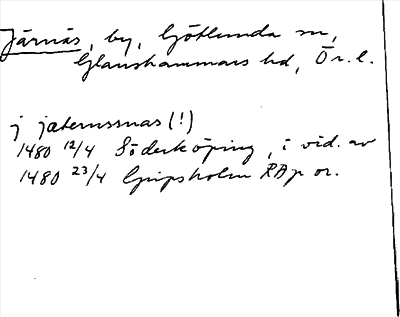 Järnäs, by, Götlunda sn,
Glanshammars hd, Ör. l.
j jaternssnas (!)
1480 12/4 Söderköping, i vid. av
1480 23/4 Gripsholm RAp or.